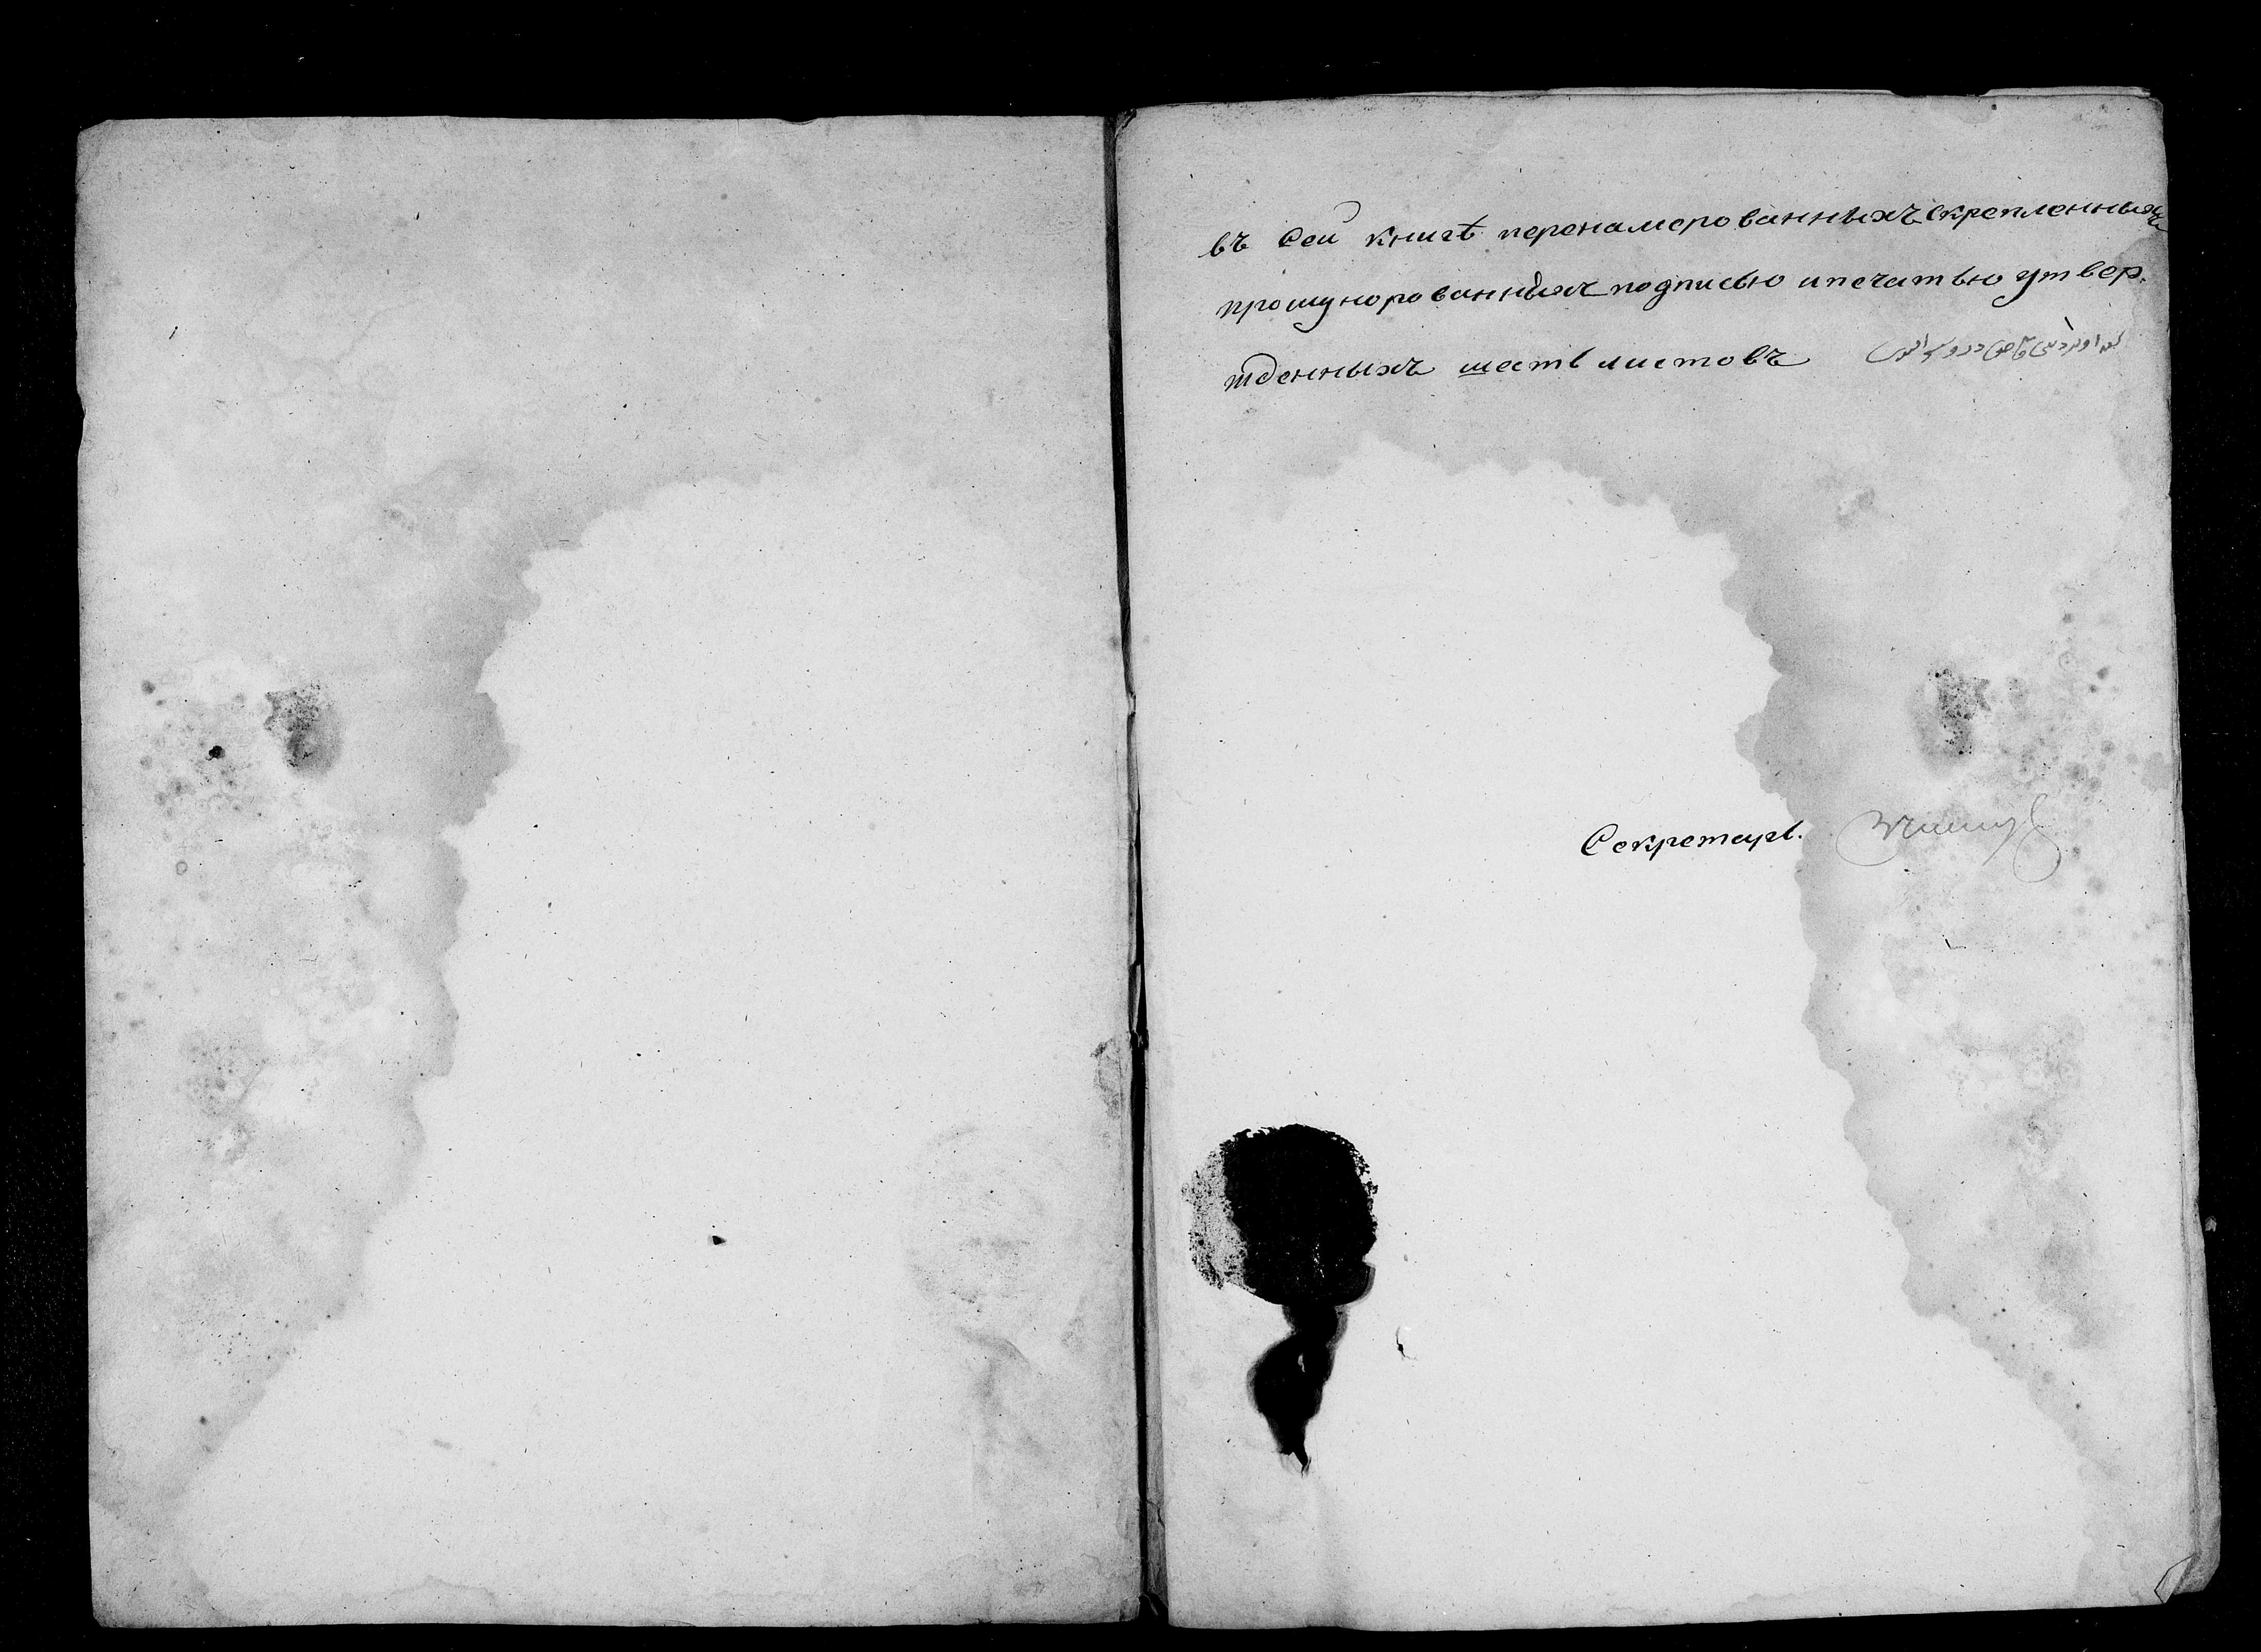 въ сей книгѣ перенамерованныхъ скрепленныхъ
прошунорованныхъ подписью и печатью утвер.
жденныхъ шесть листовъ
Секретарь.